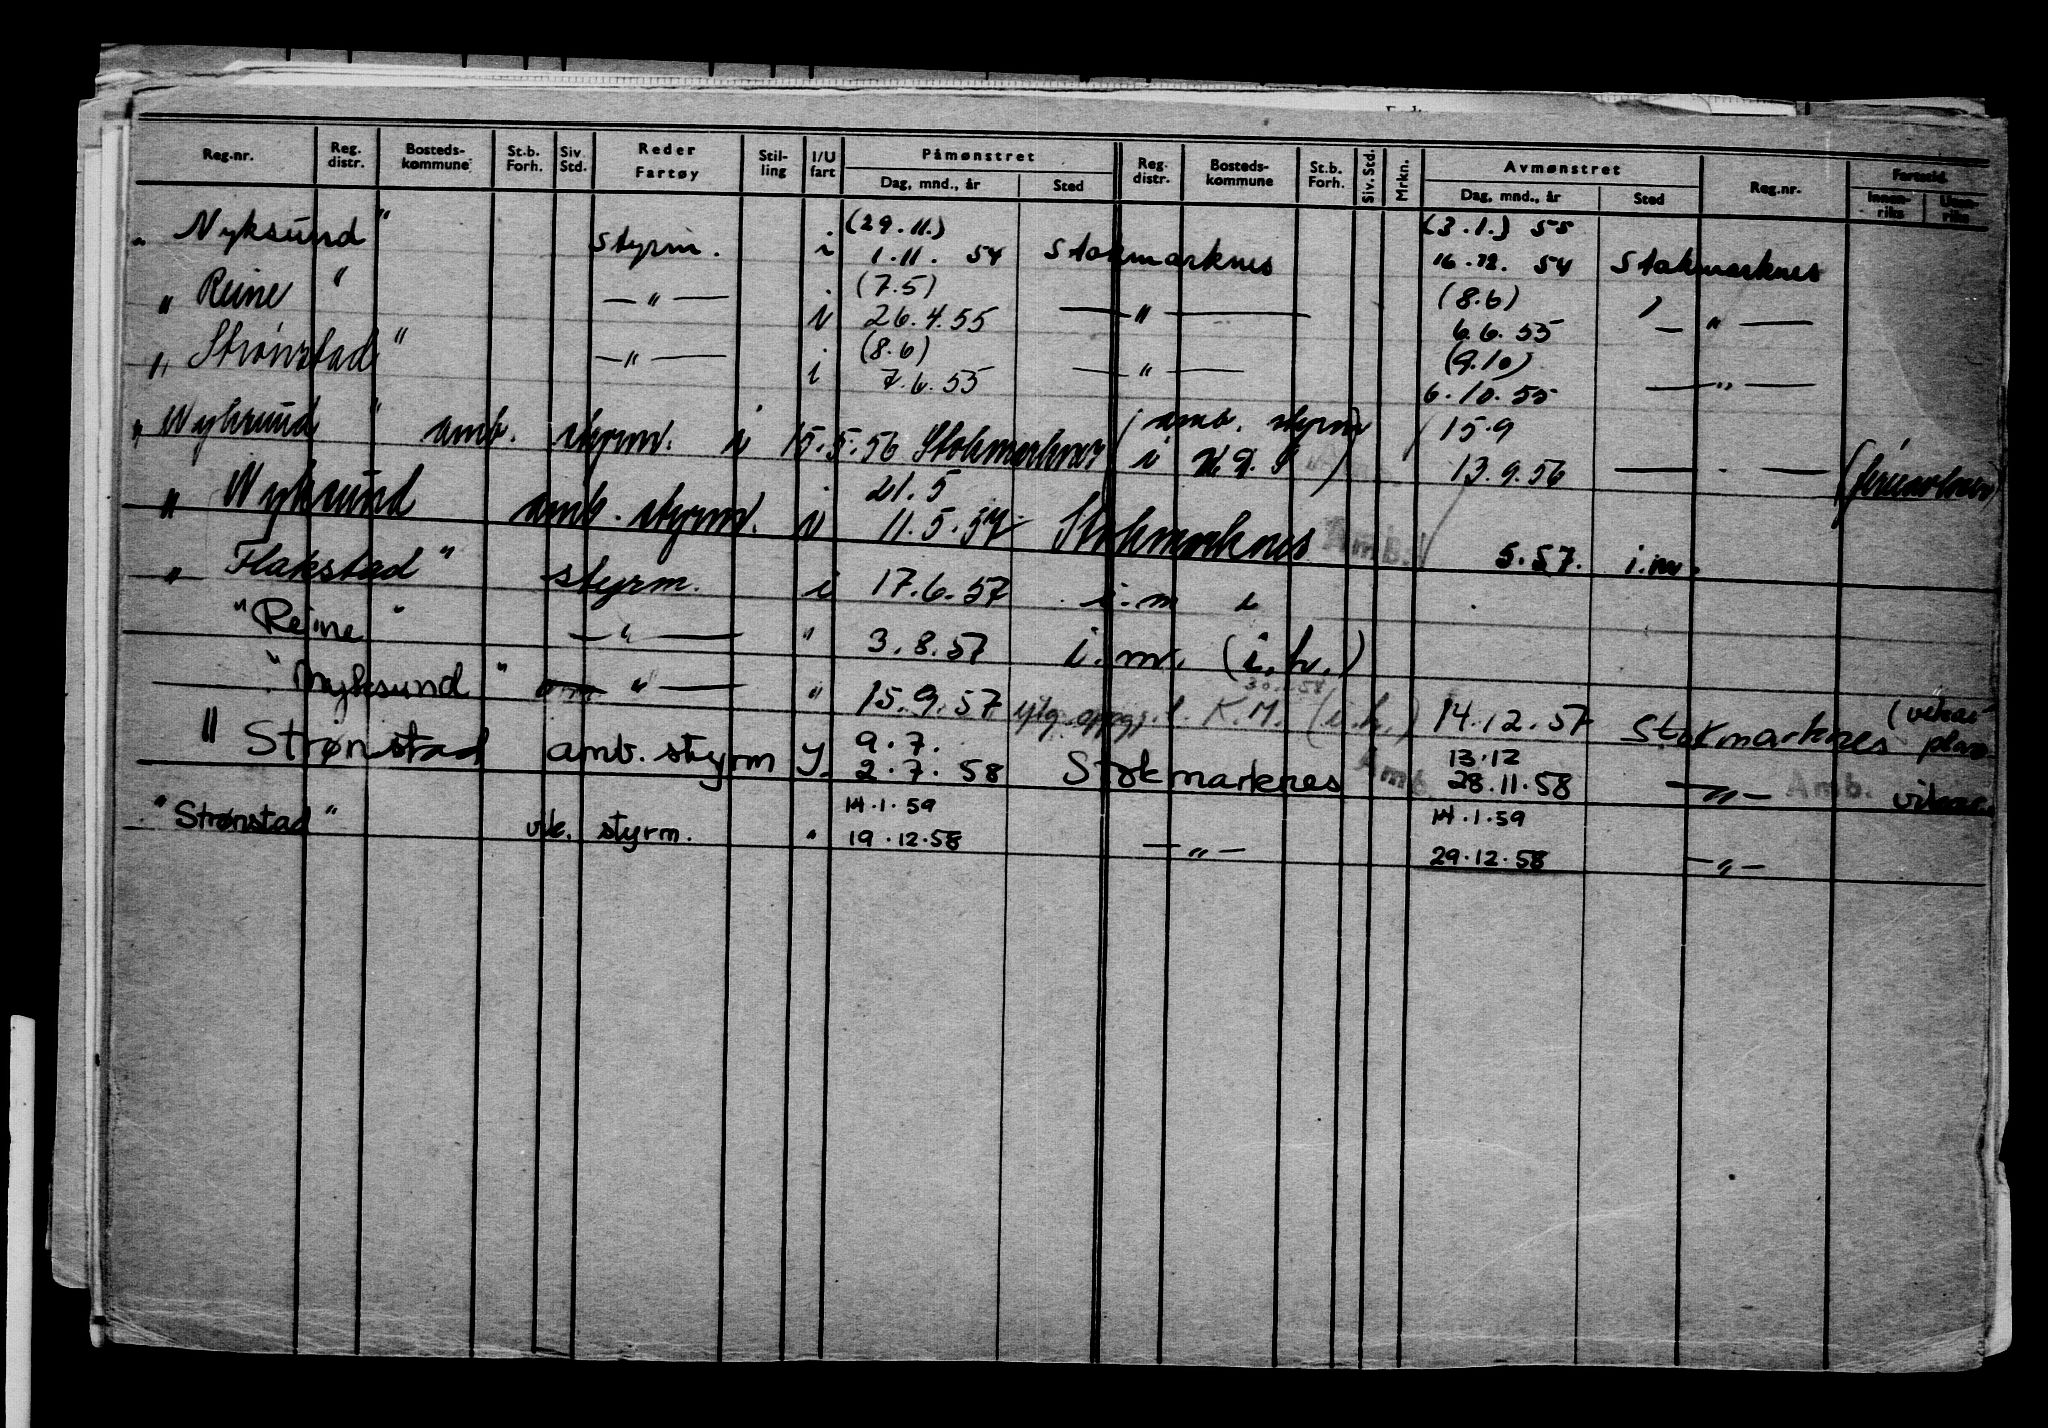 Reg.nr. Reg. distr. Bosteds-kommune St.b. Forh. Siv. Std. Reder Fartøy Stil-ling I/U fart Påmønstret Dag, mnd., år Sted Reg. distr. Bosteds-kommune St.b. Forh. Siv. Std. Mrkn. Avmønstret Dag, mnd., år Sted Reg.nr. Fartstid. Innen-riks Uten-riks
(29.11.) (3.1.) 55
" Nyksund " styrm. i 1.11. 54 Stokmarknes 16.12. 54 Stokmarknes
(7.5) (8.6)
" Reine " — " — i 26.4.55 — " — 6.6.55 — " —
(8.6) (9.10)
" Strønstad " — " — i 7.6.55 — " — 6.10.55 — " —
(amb. styrm 15.9
" Nyksund " amb. styrm. i 15.5.56 Stokmarknes i 13.9.56 — " —
21.5
" Nyksund amb. styrm. i 11.5.57 Stokmarknes Amb. 5.57. i.m.
" Flakstad " styrm. i 17.6.57 i.m
" Reine " — " — " 3.8.57 i.m. (i.h.)
" Nyksund " — " — " 15.9.57 iflg. oppg. f. K.M. (i.h.) 14.12.57 Stokmarknes
9.7. 13.12
" Strønstad amb. styrm 2.7.58 Stokmarknes Amb. 28.11.58 — " — Amb.
14.1.59 14.1.59
" Strønstad " vik. styrm. " 19.12.58 — " — 29.12.58 — " —